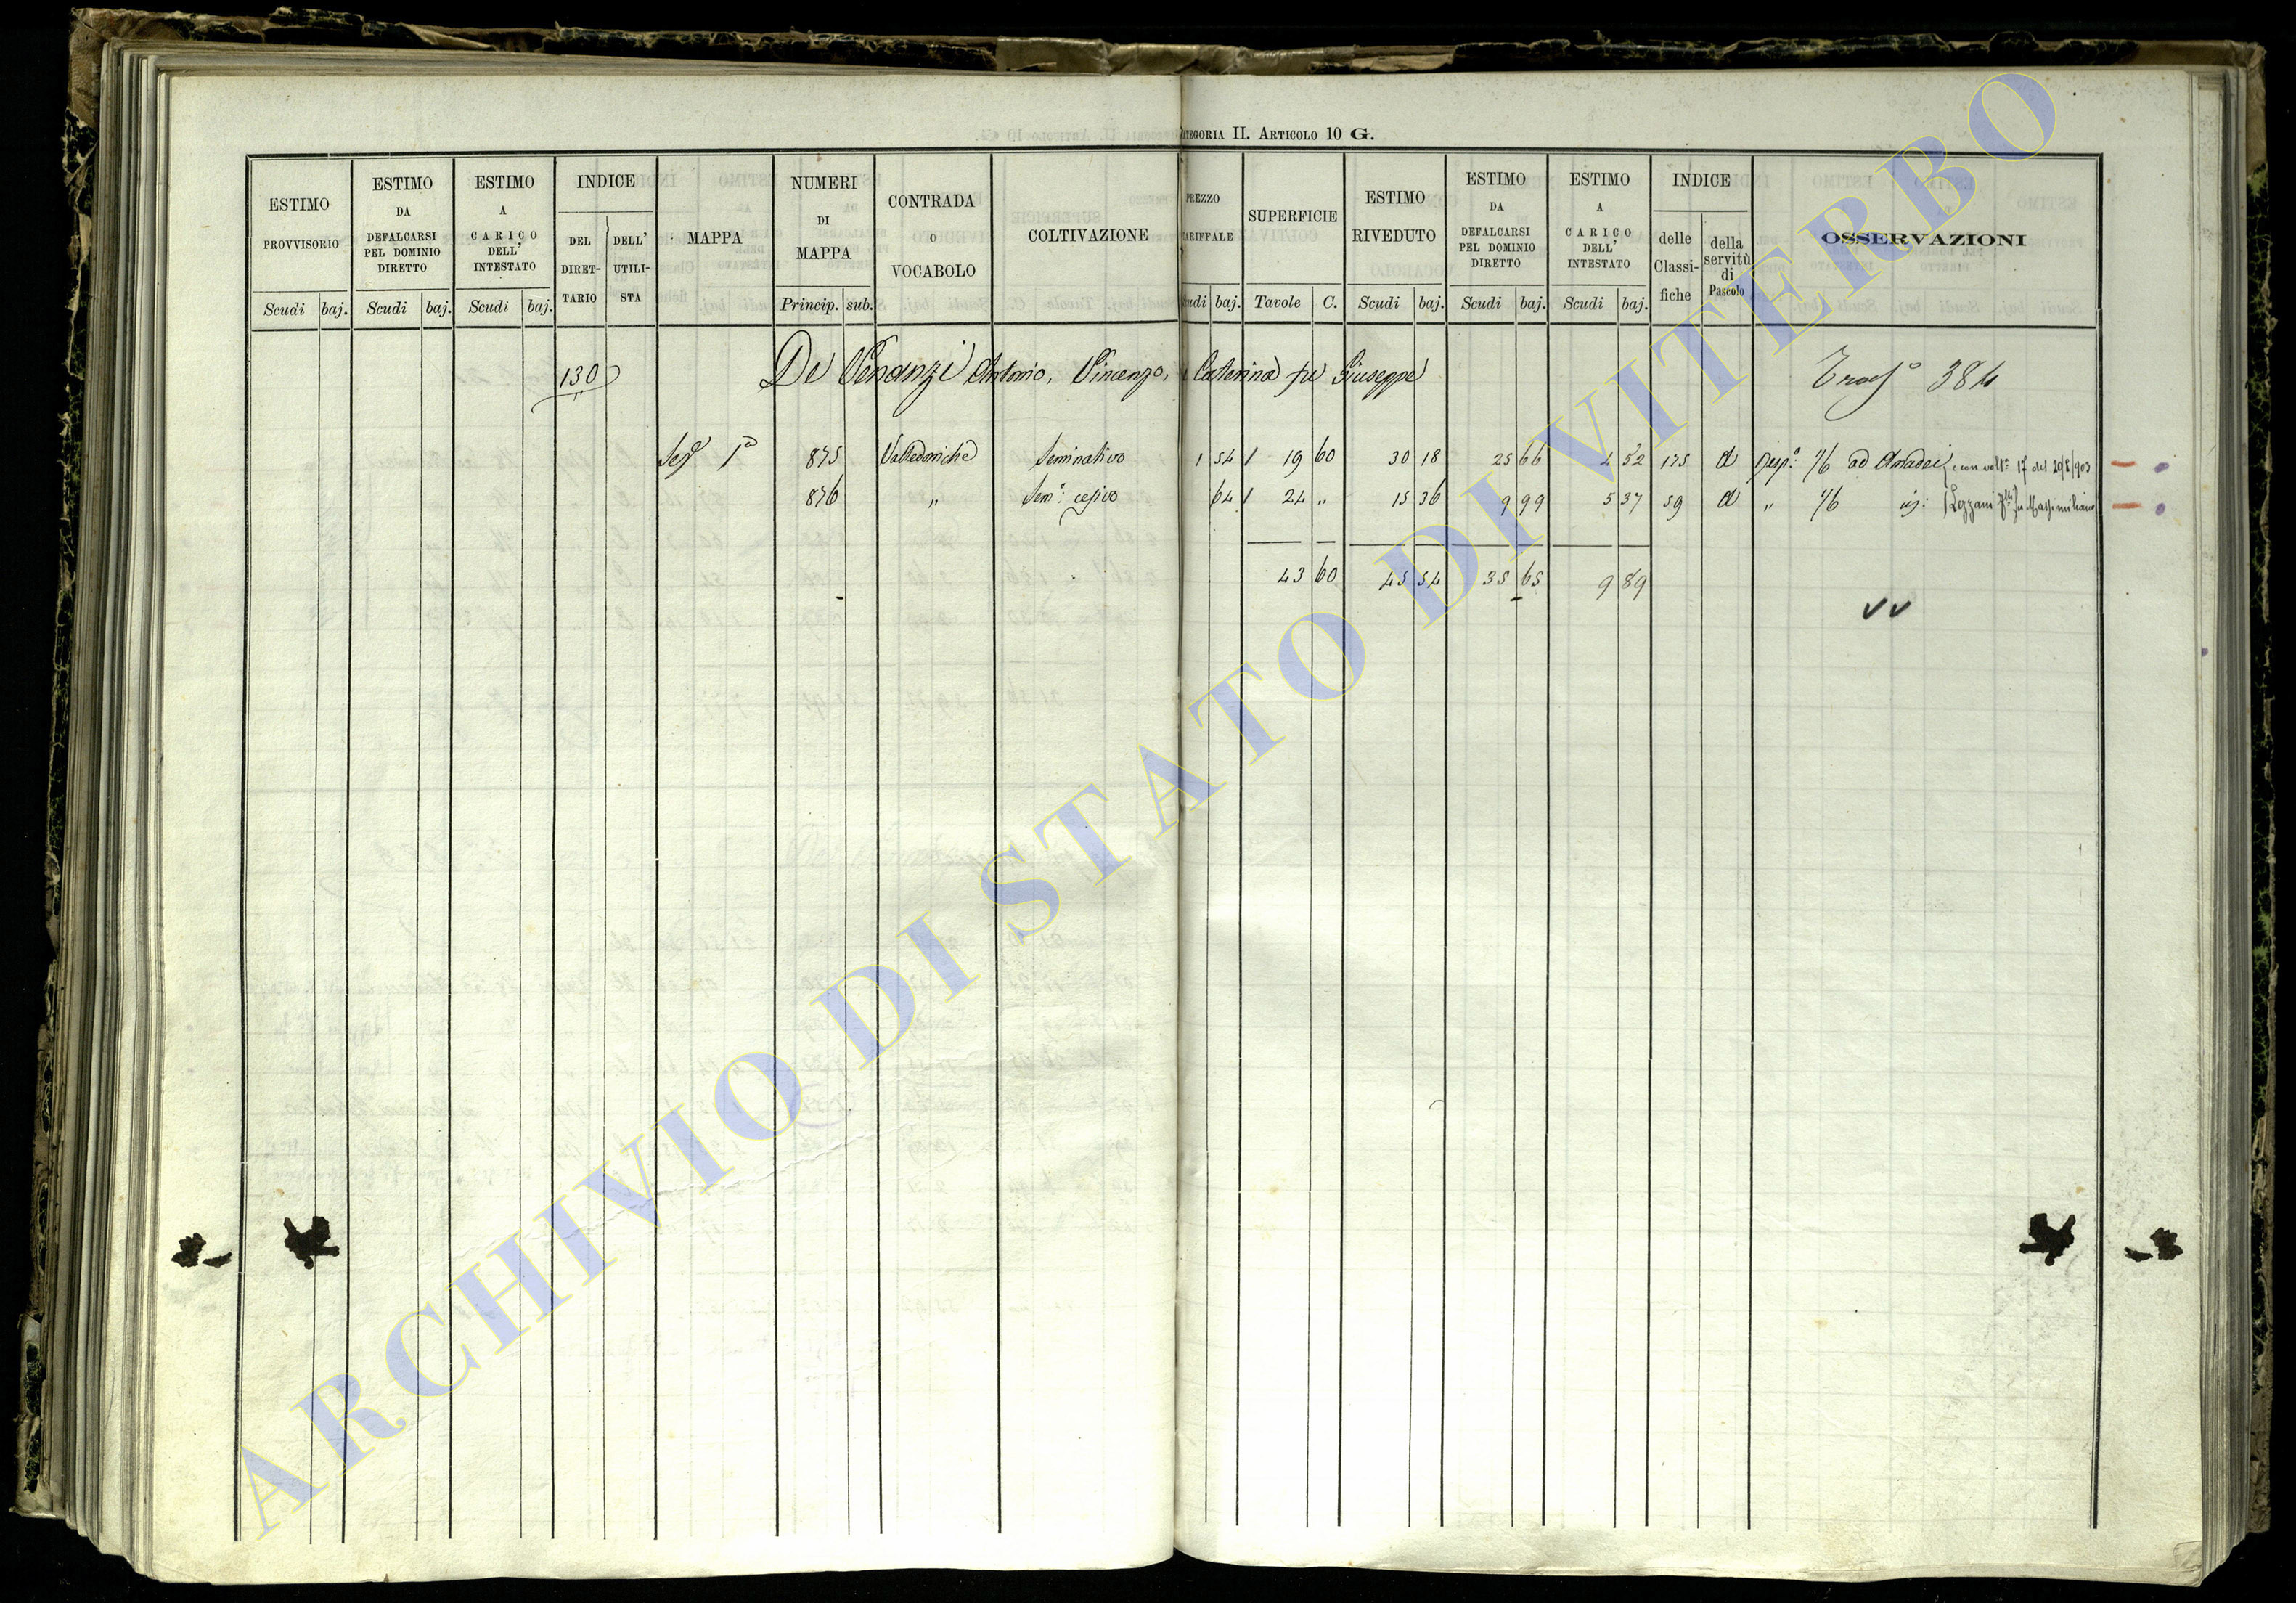 ATEGORIA II. ARTICOLO 10 G.
ESTIMO PROVVISORIO Scudi baj.
ESTIMO DA DEFALCARSI PEL DOMINIO DIRETTO Scudi baj.
ESTIMO A CARICO DELL' INTESTATO Scudi baj.
INDICE DEL DIRET-TARIO DELL' UTILI-STA
MAPPA
NUMERI DI MAPPA Princip. sub.
CONTRADA O VOCABOLO
COLTIVAZIONE
PREZZO TARIFFALE Scudi baj.
SUPERFICIE Tavole C.
ESTIMO RIVEDUTO Scudi baj.
ESTIMO DA DEFALCARSI PEL DOMINIO DIRETTO Scudi baj.
ESTIMO A CARICO DELL' INTESTATO Scudi baj.
INDICE delle Classi-fiche della servitù di Pascolo
OSSERVAZIONI
130 De Venanzi Antonio, Vincenzo, e Caterina fu Giuseppe 384
Sez.e 1a 875 Valledoniche Seminativo 1 54 19 60 30 18 25 66 4 52 175 d Resp.o 1/6 ad Amadei con volt.a 17 del 20/8/903
876 " Sem.o cesivo 64 24 " 15 36 9 99 5 37 59 d " 1/6 id: (Lezzani fu Massimiliano)
43 60 45 54 35 65 9 89
ARCHIVIO DI STATO DI VITERBO